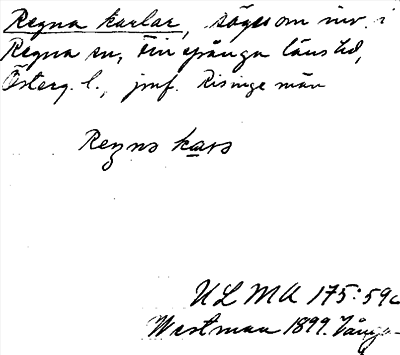 Regna karlar, säges om inv. i
Regna sn, Finspånga läns hd,
Österg. l., jmf. Risinge män
Regns kars
ULMA 175:59c
Westman 1899. Vånga